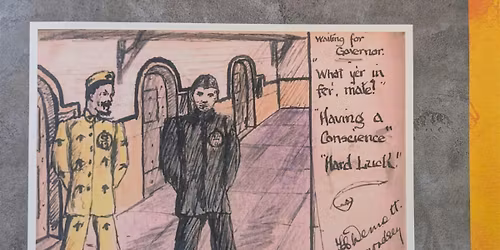 Waiting for
Governor.
"What yer in
fer, mate?"
"Having a
Conscience"
"Hard Luck."